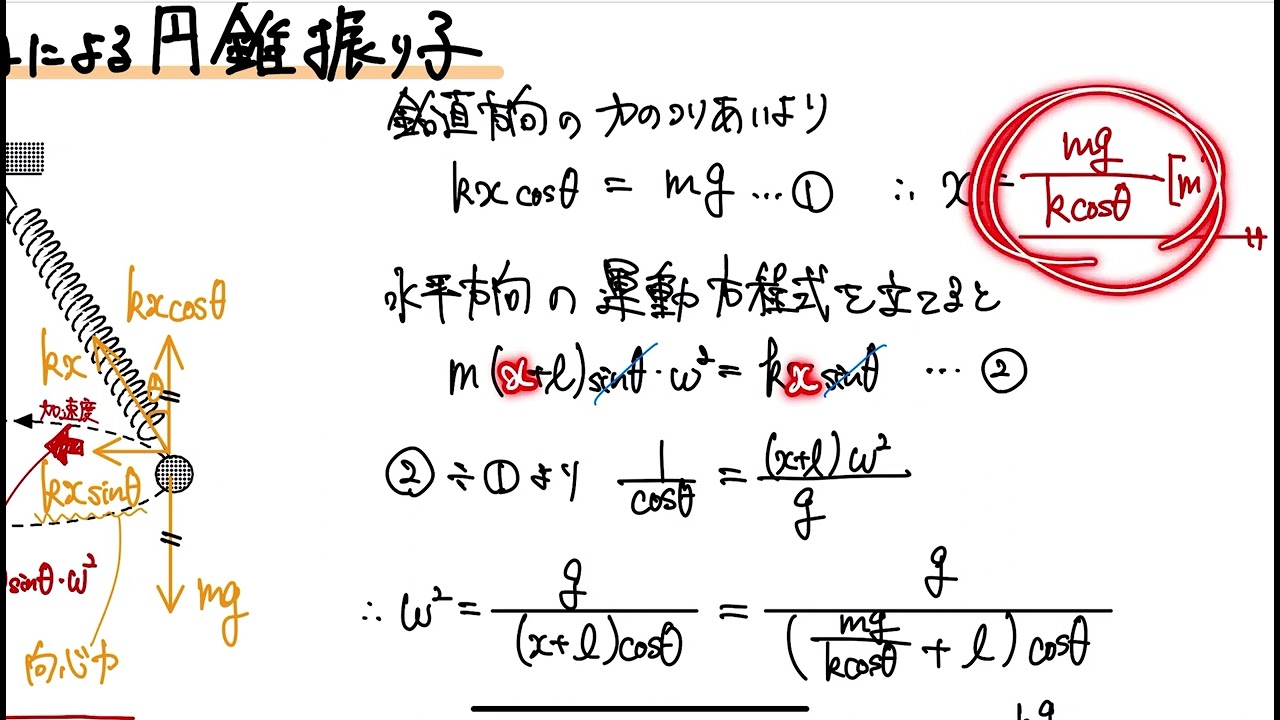 による円錐振り子
鉛直方向の力のつりあいより
kx cosθ = mg … ① ∴ x = mg/(k cosθ) [m]
水平方向の運動方程式を立てると
m(x+l)sinθ・ω² = kx sinθ … ②
② ÷ ① より 1/cosθ = (x+l)ω²/g
∴ ω² = g/((x+l)cosθ) = g/((mg/(k cosθ) + l) cosθ)
kx cosθ
kx
θ
加速度
kx sinθ
sinθ・ω²
mg
向心力